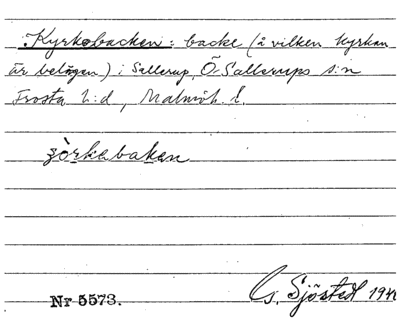 Kyrkobacken: backe (å vilken kyrkan
är belägen) i Sallerup, Ö. Sallerups s:n
Frosta h:d, Malmöh. l.
Nr 5573.
G. Sjöstedt